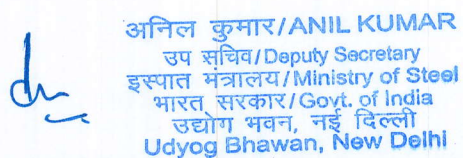 अनिल कुमार/ANIL KUMAR
उप सचिव/Deputy Secretary
इस्पात मंत्रालय/Ministry of Steel
भारत सरकार/Govt. of India
उद्योग भवन, नई दिल्ली
Udyog Bhawan, New Delhi